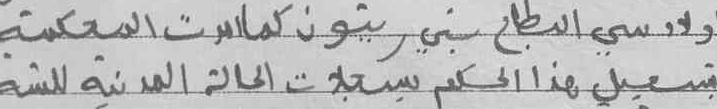 ولاد سي البطاح بني زيتون كما امرت المحكمة
بتسجيل هذا الحكم بسجلات الحالة المدنية للسنة